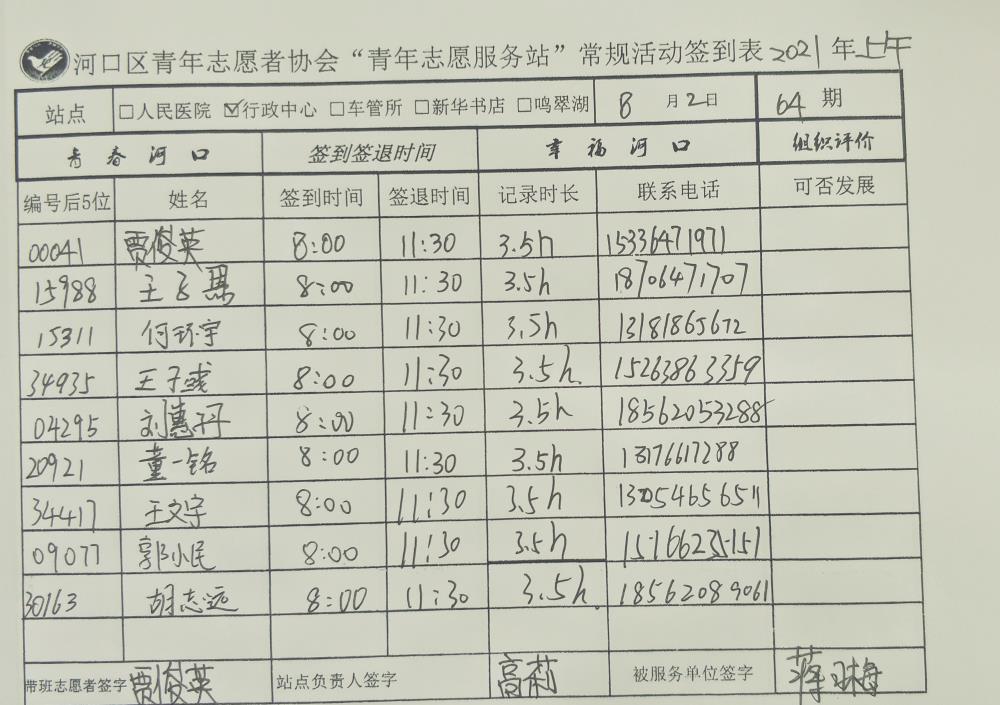 河口区青年志愿者协会“青年志愿服务站”常规活动签到表2021年上午
站点 □人民医院 ☑行政中心 □车管所 □新华书店 □鸣翠湖 8月2日 64期
青春河口 签到签退时间 幸福河口 组织评价
编号后5位 姓名 签到时间 签退时间 记录时长 联系电话 可否发展
00041 贾俊英 8:00 11:30 3.5h 15336471971
15988 王子 8:00 11:30 3.5h 18706471707
15311 何环宇 8:00 11:30 3.5h 13181865672
34935 王子彧 8:00 11:30 3.5h 15263863359
04295 刘惠 8:00 11:30 3.5h 18562053288
20921 童一铭 8:00 11:30 3.5h 13176617288
34417 王文宇 8:00 11:30 3.5h 13205465651
09077 郭小民 8:00 11:30 3.5h
30163 胡志远 8:00 11:30 3.5h 18562089061
带班志愿者签字 贾俊英 站点负责人签字 高莉 被服务单位签字